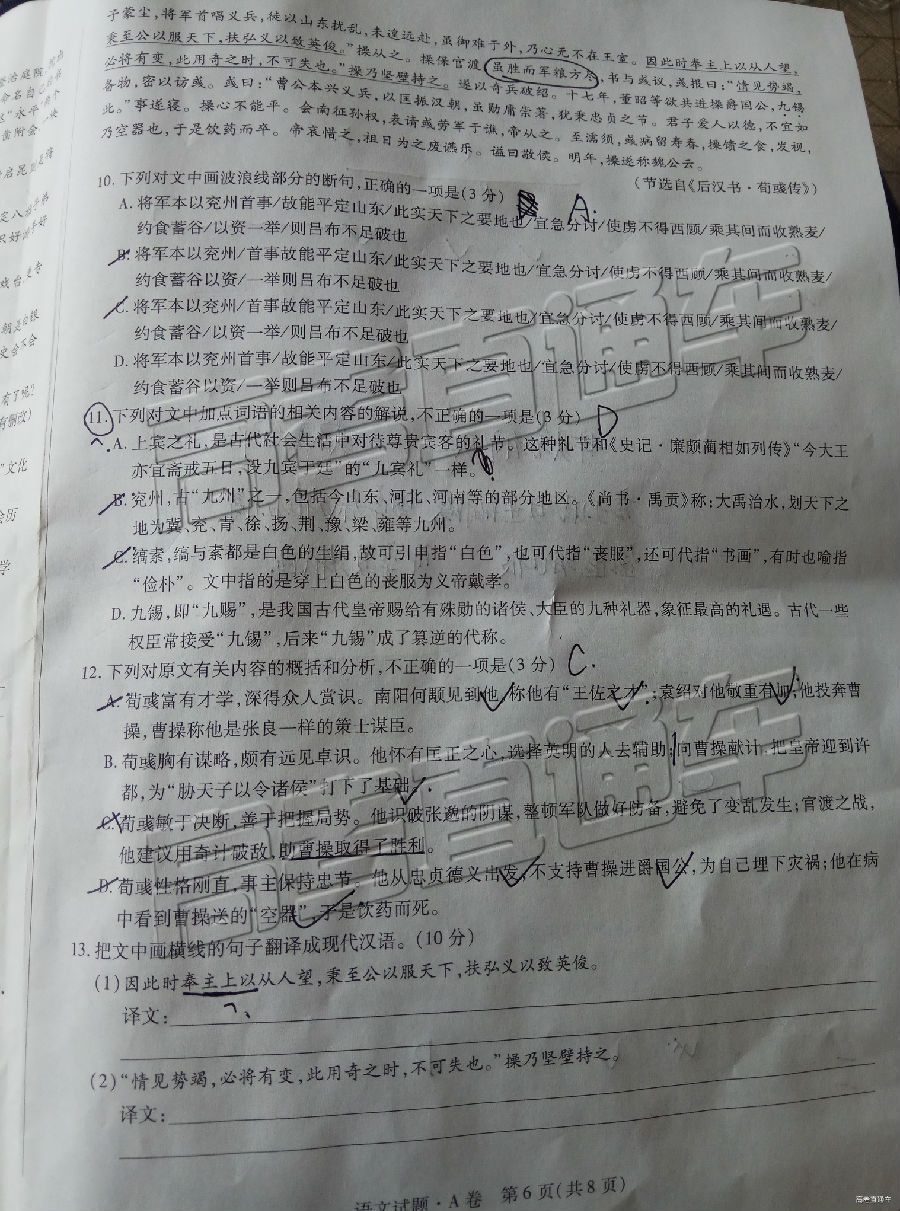 于蒙尘，将军首唱义兵，徒以山东扰乱，未遑远赴，虽御难于外，乃心无不在王室。因此时奉主上以从人望，
秉至公以服天下，扶弘义以致英俊。”操从之。操保官渡，虽胜而军粮方尽，书与彧议，彧报曰：“情见势竭，
必将有变，此用奇之时，不可失也。”操乃坚壁持之。遂以奇兵破绍。十七年，董昭等欲共进操爵国公，九锡
备物，密以访彧。彧曰：“曹公本兴义兵，以匡振汉朝，虽勋庸崇著，犹秉忠贞之节。君子爱人以德，不宜如
此。”事遂寝。操心不能平。会南征孙权，表请彧劳军于谯，帝从之。至濡须，彧病留寿春，操馈之食，发视，
乃空器也，于是饮药而卒。帝哀惜之，祖日为之废讌乐。谥曰敬侯。明年，操遂称魏公云。
（节选自《后汉书·荀彧传》）
10. 下列对文中画波浪线部分的断句，正确的一项是(3分) A.
A. 将军本以兖州首事/故能平定山东/此实天下之要地也/宜急分讨/使虏不得西顾/乘其间而收熟麦/
约食蓄谷以资一举/则吕布不足破也
B. 将军本以兖州/首事故能平定山东/此实天下之要地也/宜急分讨/使虏不得西顾/乘其间而收熟麦/
约食蓄谷以资/一举则吕布不足破也
C. 将军本以兖州/首事故能平定山东/此实天下之要地也/宜急分讨/使虏不得西顾/乘其间而收熟麦/
约食蓄谷/以资一举则吕布不足破也
D. 将军本以兖州首事/故能平定山东/此实天下之要地也/宜急分讨/使虏不得西顾/乘其间而收熟麦/
约食蓄谷以资/一举则吕布不足破也
11. 下列对文中加点词语的相关内容的解说，不正确的一项是(3分) D
A. 上宾之礼，是古代社会生活中对待尊贵宾客的礼节。这种礼节和《史记·廉颇蔺相如列传》“今大王
亦宜斋戒五日，设九宾于廷”的“九宾礼”一样。
B. 兖州，古“九州”之一，包括今山东、河北、河南等的部分地区。《尚书·禹贡》称：大禹治水，划天下之
地为冀、兖、青、徐、扬、荆、豫、梁、雍等九州。
C. 缟素，缟与素都是白色的生绢，故可引申指“白色”，也可代指“丧服”，还可代指“书画”，有时也喻指
“俭朴”。文中指的是穿上白色的丧服为义帝戴孝。
D. 九锡，即“九赐”，是我国古代皇帝赐给有殊勋的诸侯、大臣的九种礼器，象征最高的礼遇。古代一些
权臣常接受“九锡”，后来“九锡”成了篡逆的代称。
12. 下列对原文有关内容的概括和分析，不正确的一项是(3分) C.
A. 荀彧富有才学，深得众人赏识。南阳何颙见到他，称他有“王佐之才”；袁绍对他敬重有加；他投奔曹
操，曹操称他是张良一样的策士谋臣。
B. 荀彧胸有谋略，颇有远见卓识。他怀有匡正之心，选择英明的人去辅助；向曹操献计，把皇帝迎到许
都，为“胁天子以令诸侯”打下了基础。
C. 荀彧敏于决断，善于把握局势。他识破张邈的阴谋，整顿军队做好防备，避免了变乱发生；官渡之战，
他建议用奇计破敌，助曹操取得了胜利。
D. 荀彧性格刚直，事主保持忠节。他从忠贞德义出发，不支持曹操进爵国公，为自己埋下灾祸；他在病
中看到曹操送的“空器”，于是饮药而死。
13. 把文中画横线的句子翻译成现代汉语。(10分)
(1)因此时奉主上以从人望，秉至公以服天下，扶弘义以致英俊。
译文：
(2)“情见势竭，必将有变，此用奇之时，不可失也。”操乃坚壁持之。
译文：
语文试题·A卷 第6页(共8页)
高考直通车
高考直通车
高考直通车